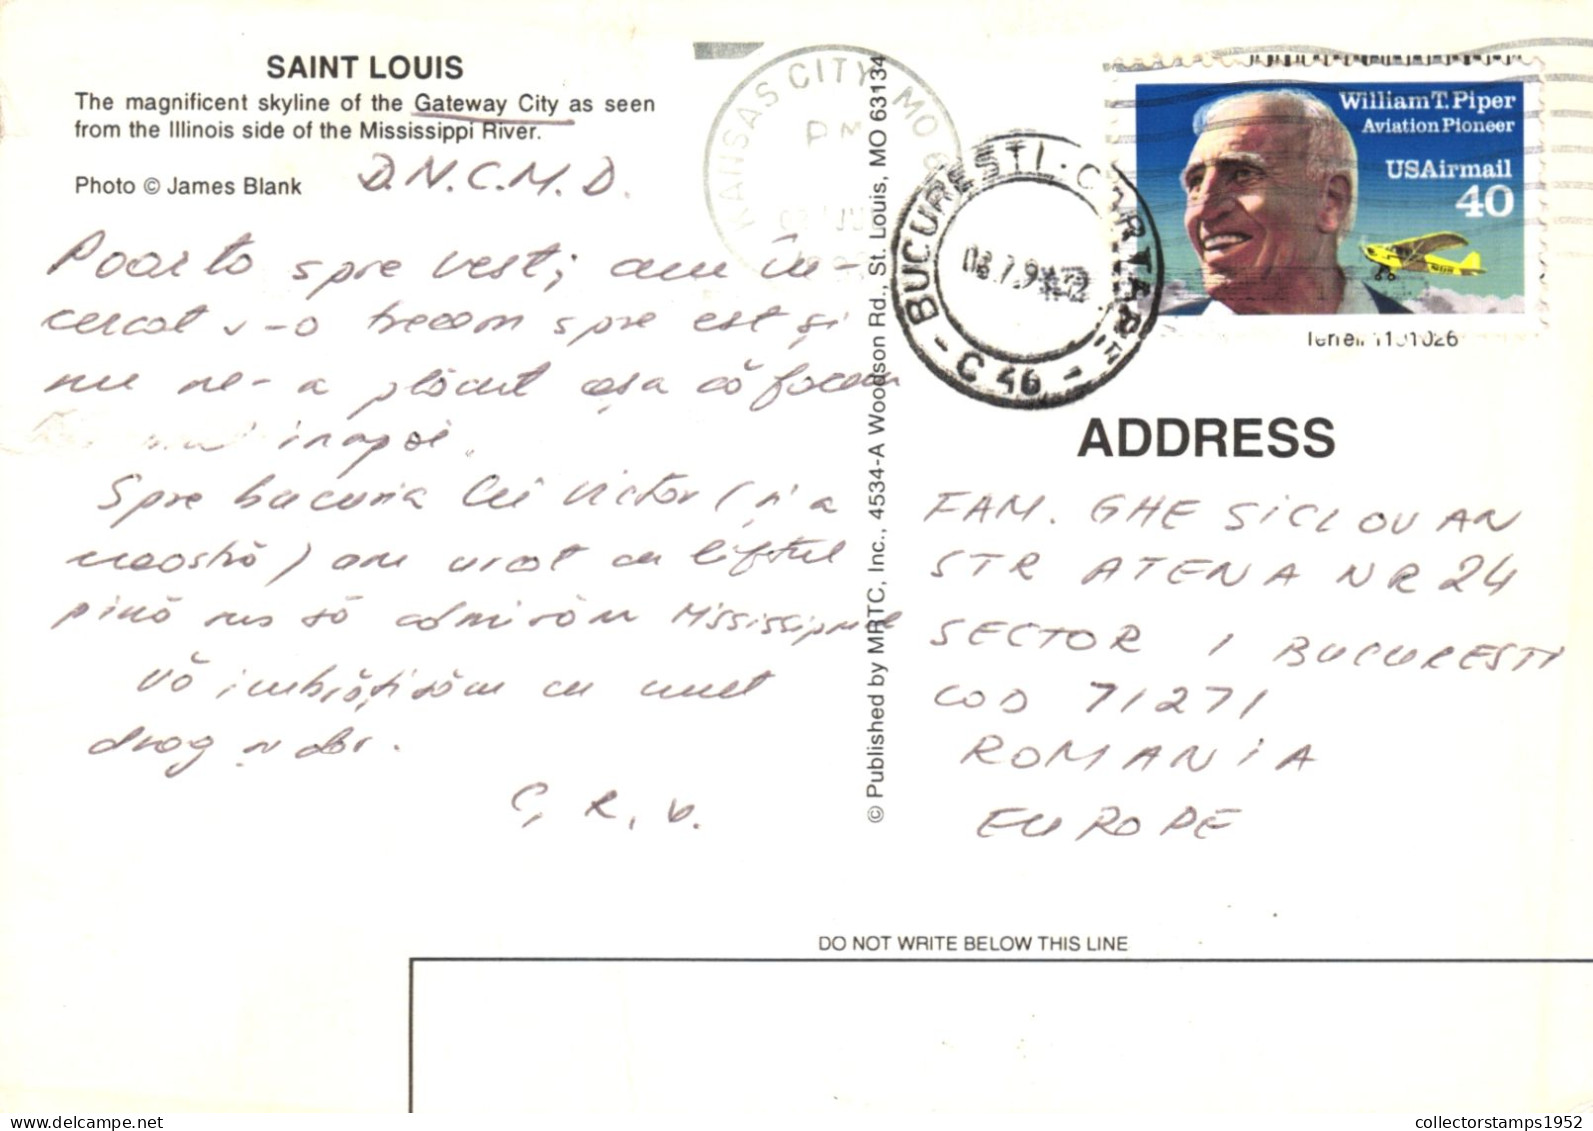 SAINT LOUIS
The magnificent skyline of the Gateway City as seen
from the Illinois side of the Mississippi River.
Photo © James Blank
D.N.C.M.D.
Poarta spre vest; am în-
cercat s-o trecem spre est și
nu ne-a plăcut așa că facem
înapoi.
Spre bucuria lui Victor (și a
noastră) am urcat cu liftul
pînă sus să admirăm Mississippiul
Vă îmbrățișăm cu mult
drag și dor.
C, R, V.
© Published by MRTC, Inc., 4534-A Woodson Rd., St. Louis, MO 63134
KANSAS CITY, MO
PM
BUCUREȘTI · CARTARE
- C 46 -
William T. Piper
Aviation Pioneer
USAirmail
40
ADDRESS
FAM. GHE SICLOVAN
STR ATENA NR 24
SECTOR 1 BUCURESTI
COD 71271
ROMANIA
EUROPE
DO NOT WRITE BELOW THIS LINE
collectorstamps1952